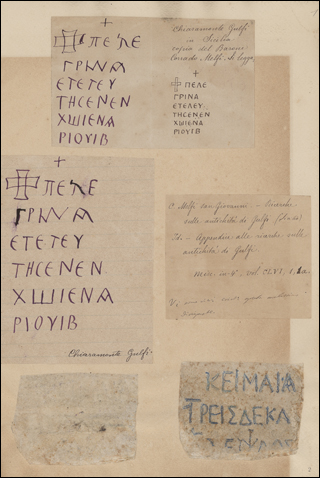 +
ΠΕΛΕ
ΓΡΙΝΑ
ΕΤΕΤΕΥ
ΤΗCΕΝΕΝ
ΧШΙΕΝΑ
ΡΙΟΥΙΒ
Chiaramonte Gulfi
in Sicilia
copia del Barone
Corrado Melfi. Si legga
+
ΠΕΛΕ
ΓΡΙΝΑ
ΕΤΕΛΕΥ
ΤΗCΕΝΕΝ
ΧШΙΕΝΑ
ΡΙΟΥΙΒ
+
ΠΕΛΕ
ΓΡΙΝΑ
ΕΤΕΤΕΥ
ΤΗCΕΝΕΝ
ΧШΙΕΝΑ
ΡΙΟΥΙΒ
Chiaramonte Gulfi
C. Melfi San Giovanni
sulle antichità di Gulfi
Id. - Appendice alle ricerche sulle
antichità di Gulfi
ΚΕΙΜΑΙΑ
ΤΡΕΙΣΔΕΚΑ